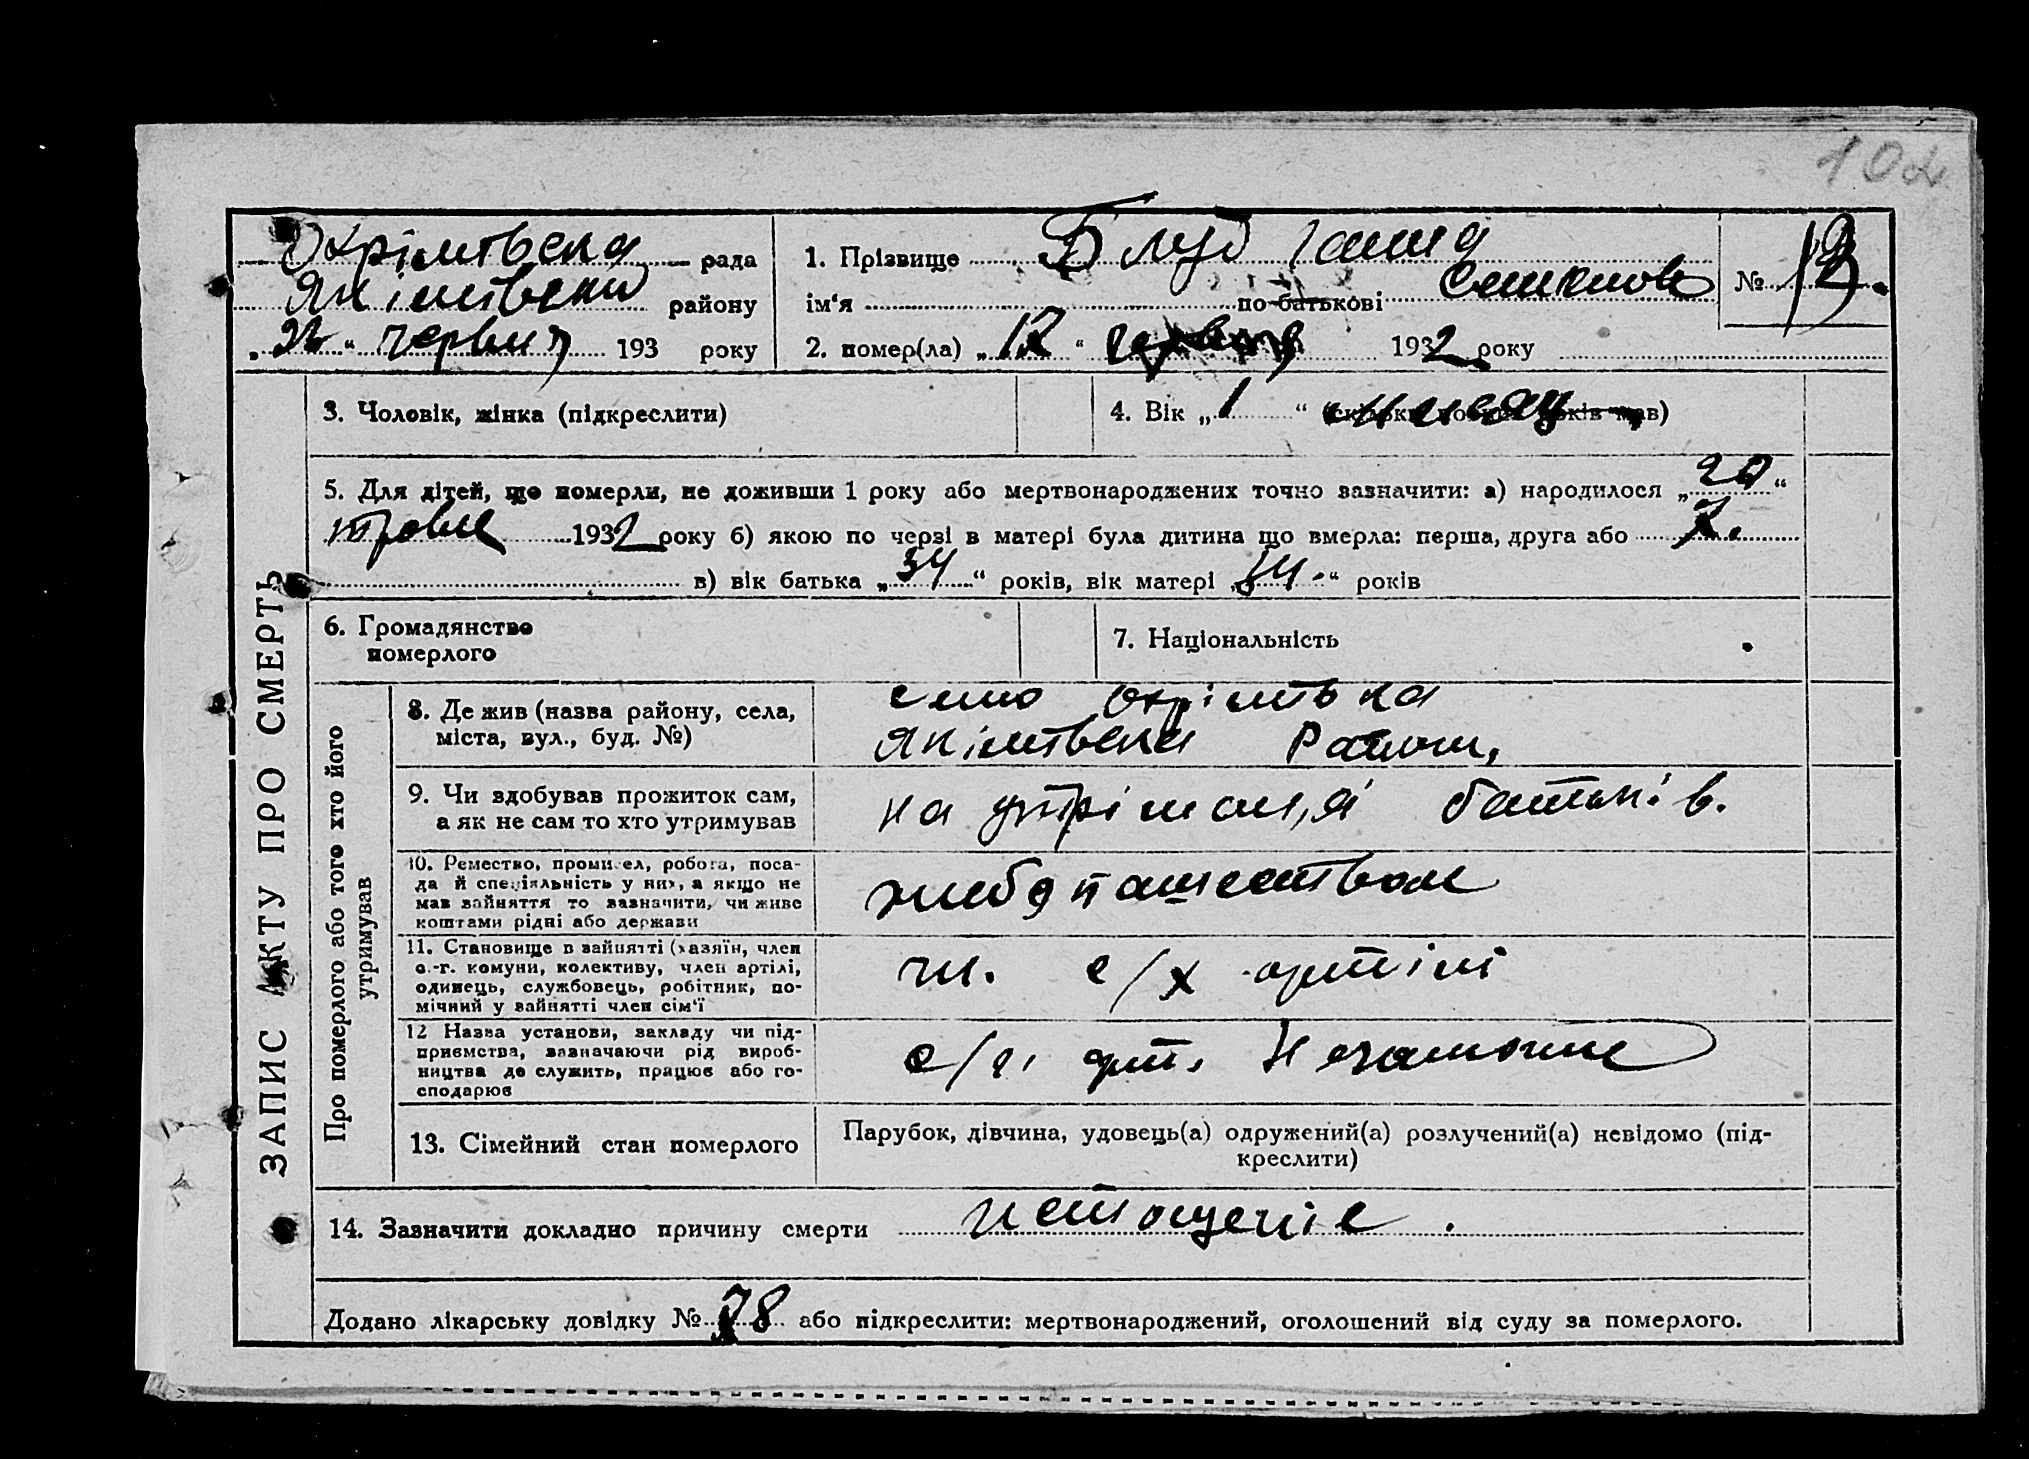 102
Охрімтвська рада
Якімтвський району
„26“ червня 193 року
1. Прізвище Блуд Ганна
ім‘я по батькові Семенов
№ 13.
2. помер(ла) „12“ червня 1932 року
3. Чоловік, жінка (підкреслити)
4. Вік „1“ (скільки повних років мав) місяц
5. Для дітей, що померли, не доживши 1 року або мертвонароджених точно зазначити: а) народилося „20“
травня 1932 року б) якою по черзі в матері була дитина що вмерла: перша, друга або
в) вік батька „34“ років, вік матері „34“ років
6. Громадянство
померлого
7. Національність
ЗАПИС АКТУ ПРО СМЕРТЬ
Про померлого або того хто його
утримував
8. Де жив (назва району, села,
міста, вул., буд. №)
село Охрімівка
Якімтвський Район,
9. Чи здобував прожиток сам,
а як не сам то хто утримував
на утріманні батьків.
10. Ремество, промисел, робота, поса-
да й спеціяльність у них, а якщо не
мав зайняття то зазначити, чи живе
коштами рідні або держави
хлебопашеством
11. Становище в зайнятті (хазяїн, член
с.-г. комуни, колективу, член артілі,
одинець, службовець, робітник, по-
мічний у зайнятті член сім‘ї
чл. с/х артілі
12 Назва установи, закладу чи під-
приємства, зазначаючи рід вироб-
ництва де служить, працює або го-
сподарює
с/г. арт. Незаможне
13. Сімейний стан померлого
Парубок, дівчина, удовець(а) одружений(а) розлучений(а) невідомо (під-
креслити)
14. Зазначити докладно причину смерти истощеніе.
Додано лікарську довідку № 78 або підкреслити: мертвонароджений, оголошений від суду за померлого.